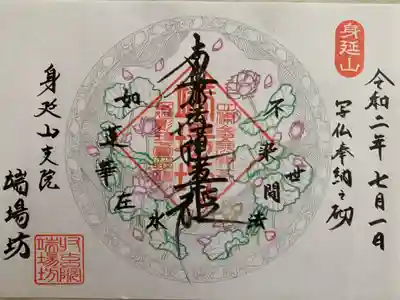 身延山
令和二年七月一日
写仏奉納之砌
不染世間法
南無妙法蓮華経
如蓮華在水
身延山支院
端場坊
端場坊